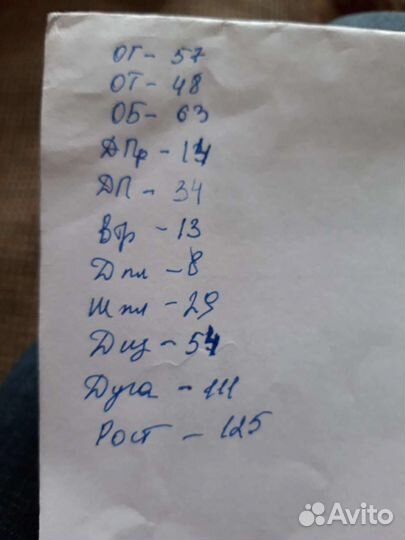 ОГ - 57
ОТ - 48
ОБ - 63
ДПр - 14
ДП - 34
Втр - 13
Дпл - 8
Шпл - 29
Диз - 54
Дуга - 111
Рост - 125
Avito